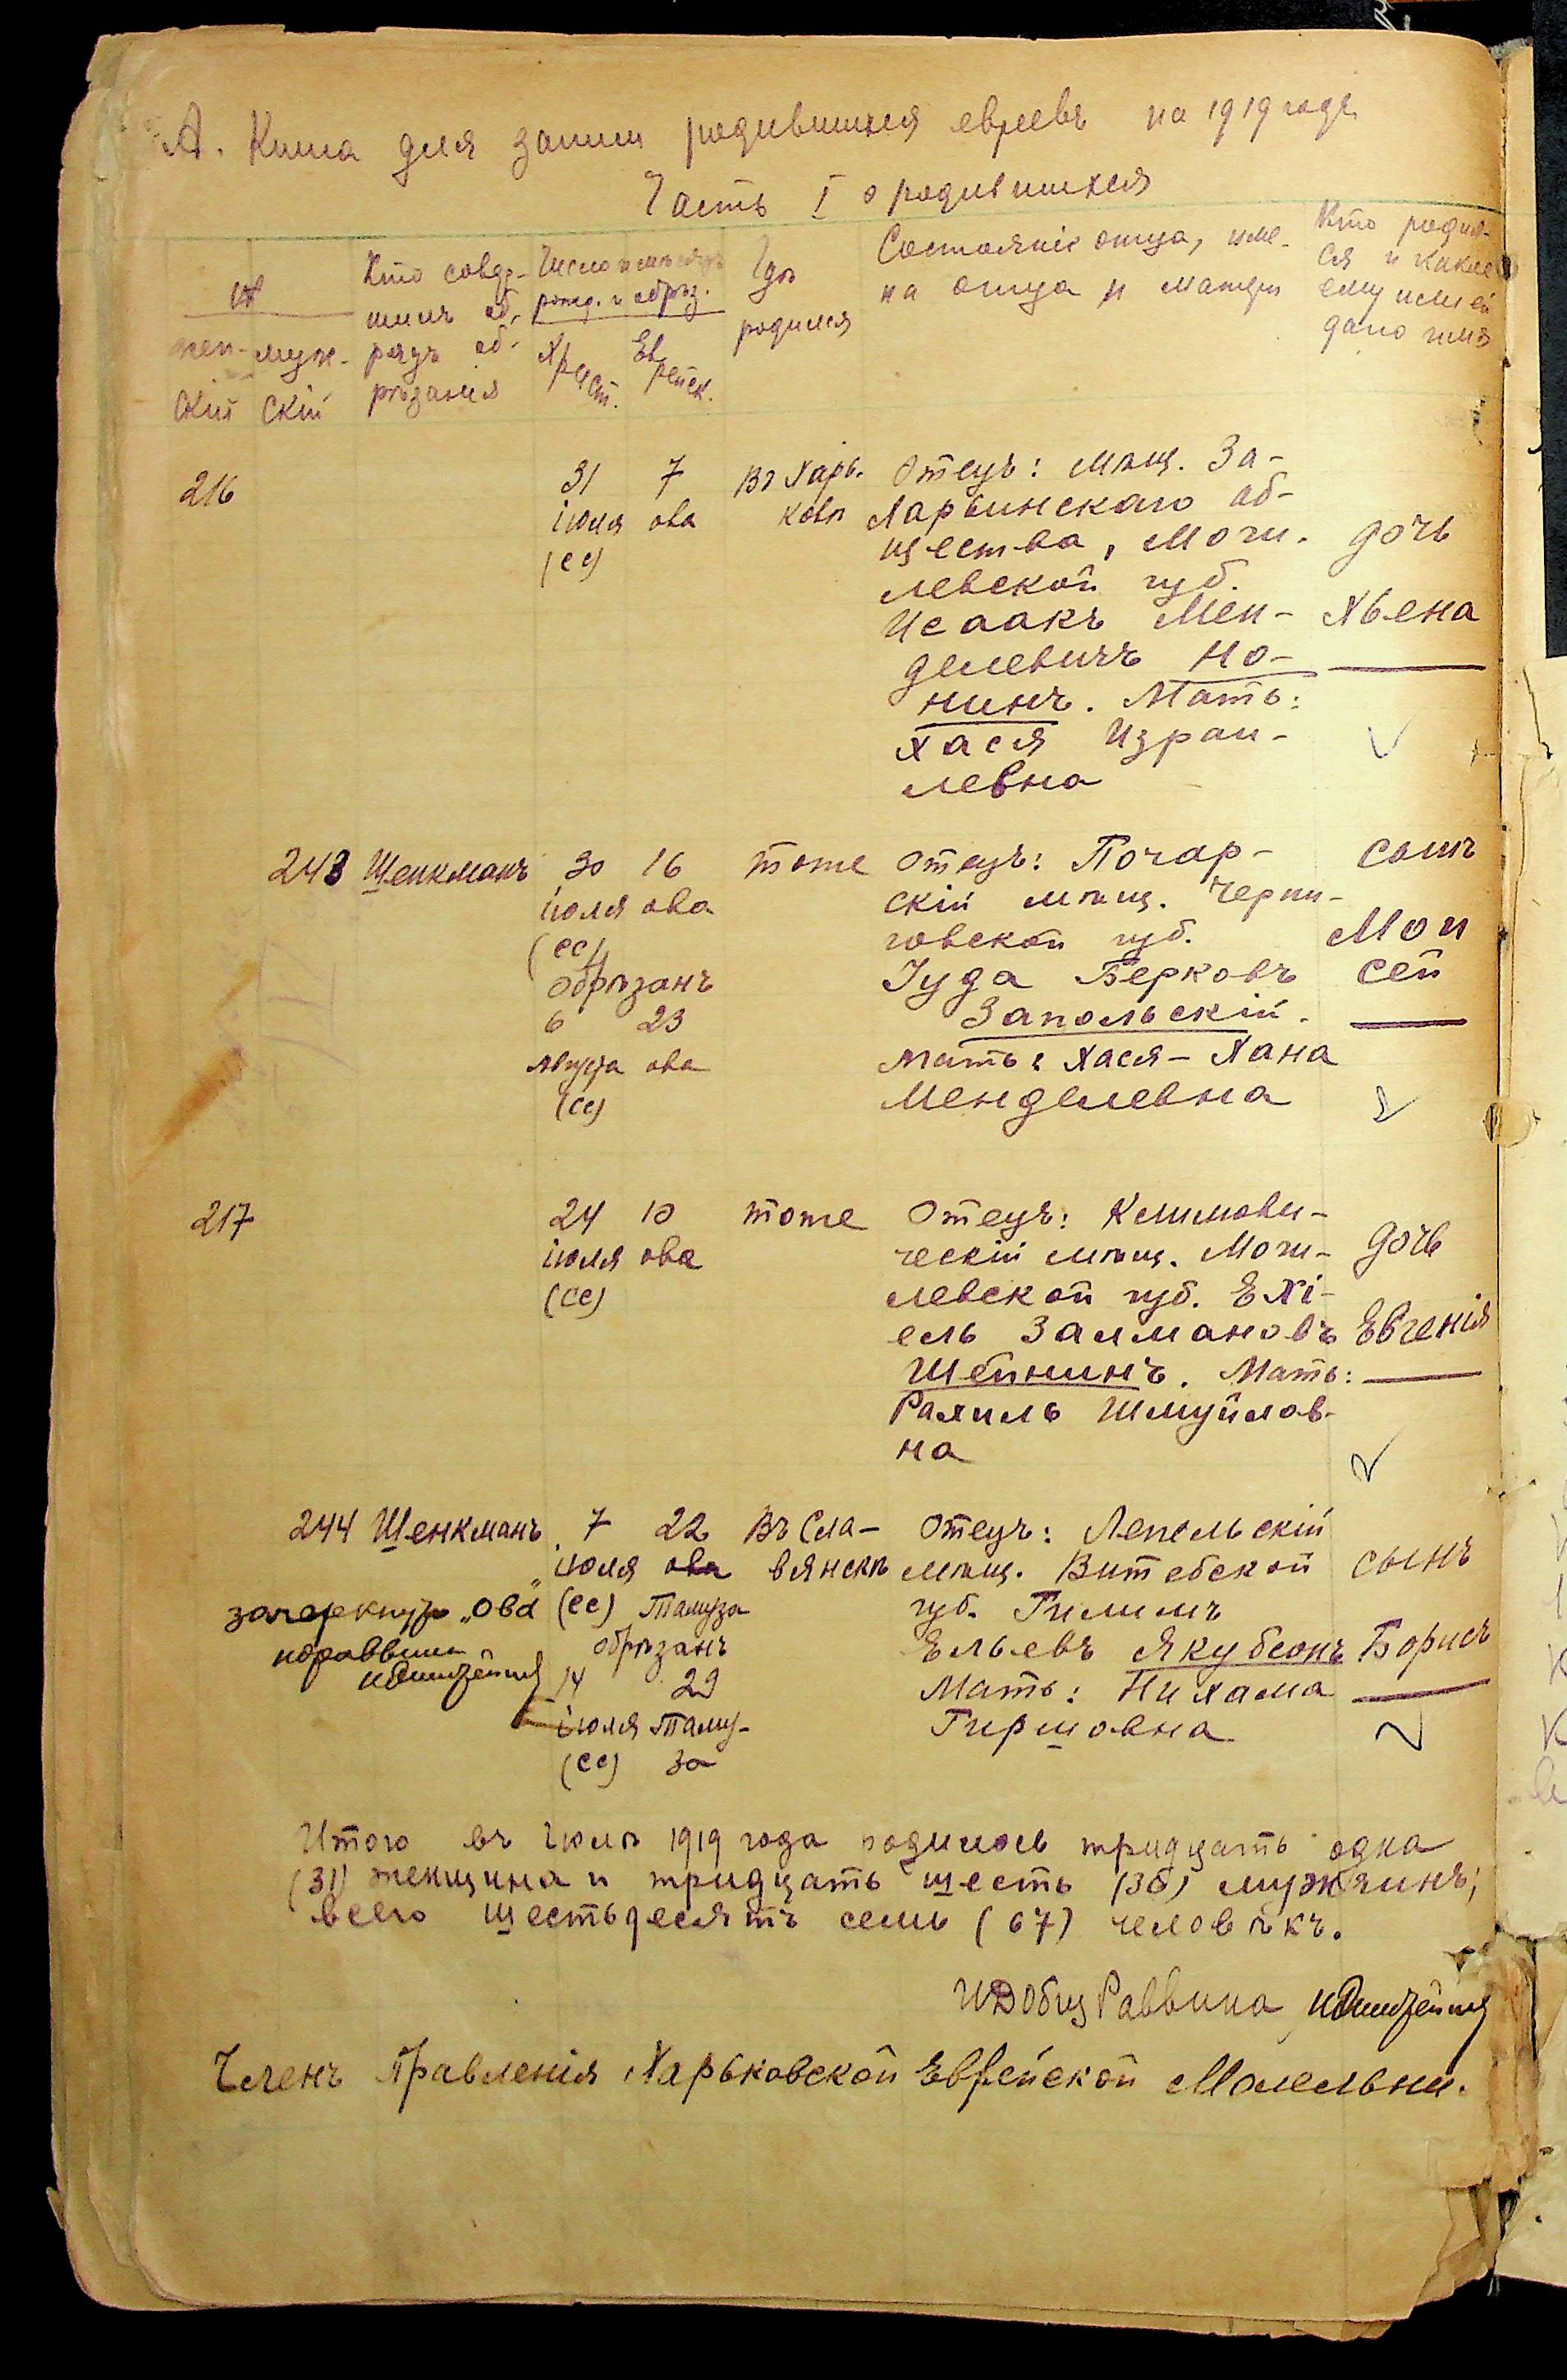 А. Книга для записи родившихся евреевъ на 1919 годъ
Часть I о родившихся
№
жен- муж-
скій скій
Кто совер-
шилъ об-
рядъ об-
рѣзанія
Число и мѣсяцъ
рожд. и обрѣз.
Христ. Еврейск.
Гдѣ
родился
Состояніе отца, име-
на отца и матери
Кто родил-
ся и какое
ему или ей
дано имя
216
31 7
іюля ова
(сс)
Въ Харь-
ковѣ
Отецъ: мѣщ. За-
ларьинскаго об-
щества, Моги-
левской губ.
Исаакъ Мен-
делевичъ Но-
нинъ. Мать:
Хася Израи-
левна
дочь
Хьена
243 Шенкманъ
30 16
іюля ова
(сс)
обрѣзанъ
6 23
Августа ова
(сс)
тоже
Отецъ: Почар-
скій мѣщ. Черни-
говской губ.
Іуда Берковъ
Запольскій.
Мать: Хася-Хана
Менделевна
сынъ
Мои
сей
217
24 10
іюля ова
(сс)
тоже
Отецъ: Климови-
ческій мѣщ. Моги-
левской губ. Ехі-
ель Залмановъ
Шейнинъ. Мать:
Рахиль Шмуйлов-
на
дочь
Евгенія
244 Шенкманъ
7 22
іюля ова
(сс) Тамуза
обрѣзанъ
14 29
іюля Таму-
(сс) за
Въ Сла-
вянскѣ
Отецъ: Лепельскій
мѣщ. Витебской
губ. Гилимъ
Ельевъ Якубсонъ
Мать: Нихама
Гиршовна
сынъ
Борисъ
зачеркнуто „ова“
и д раввина
Итого въ Іюлѣ 1919 года родилось тридцать одна
(31) женщина и тридцать шесть (36) мужчинъ;
всего шестьдесятъ семь (67) человѣкъ.
ИД Общ Раввина
Членъ Правленія Харьковской Еврейской Молельни.